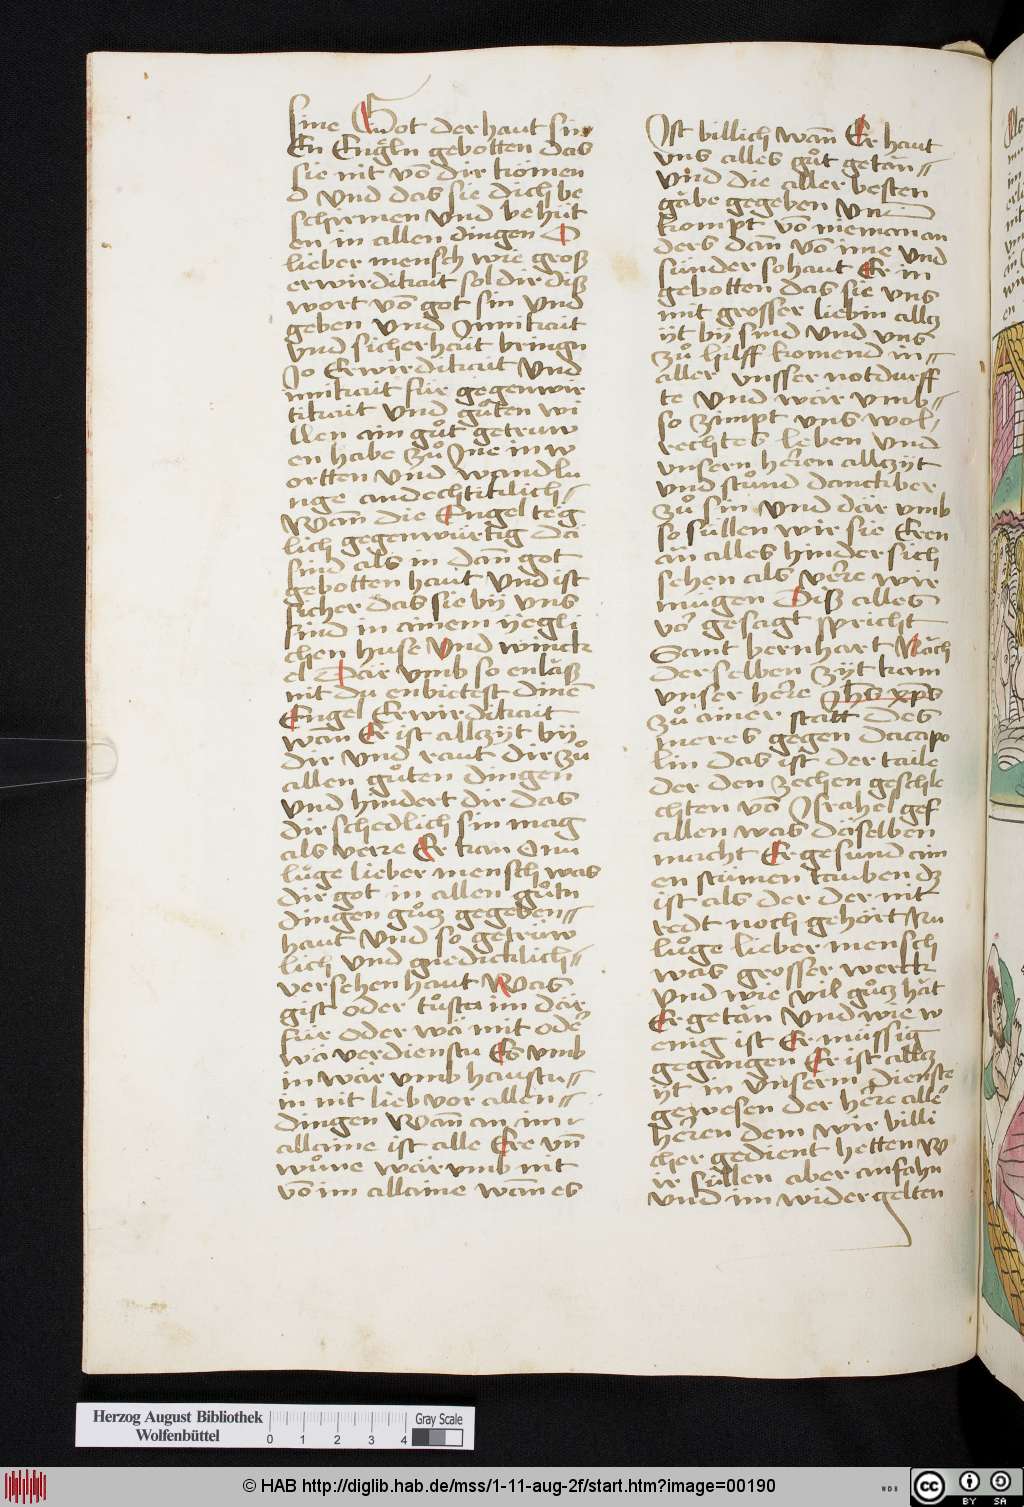 sine Got der haut sin
En Engeln gebotten das
sie nit vō dir komen
d vnd das sie dich be
schirmen vnd behüt
en in allen dingen O
lieber mensch wie groß
erwirdikait sol dir diß
wort vō got sin vnd
geben vnd Innikait
vnd sicherhait bringn
Jo Erwirdikait vnd
innikait für gegenwir
tikait vnd gůten wi
llen ain gůt getruw
en habe zů Ine in w
ortten vnd wandlu
nge andechtiklich
Wan̄ die Engel teg
lich gegenwürtig da
sind als in dan̄ got
gebotten haut vnd ist
sicher das sie bÿ vns
sind in ainem yegli
chen huse vnd winck
el Dar vmb so enlǎß
nit du enbietest dinē
Engel Erwirdikait
wan̄ Er ist allzyt bÿ
dir vnd raut dir zů
allen gůten dingen
vnd hindert dir das
dir schedlich sin mag
als verre Er kan O nu
lůge lieber mensch was
dir got in allen gůtn
dingen gůcz gegeben
haut vnd so getrüw
lich vnd gnedicklich
versehen haut Was
gist oder tůstu im dar
für oder wa mit oder
wa verdienstu Es vmb
in war vmb haustu
in nit lieb vor allen
dingen Wan̄ an im
allaine ist alle Ere vn̄
wůne war vmb nit
vō im allaine wan̄ es
Ist billich wan̄ Er haut
vns alles gůt getan
vnd die aller besten
gǎbe gegeben vn̄
kompt vō nieman an
ders dan̄ vō ime vnd
sünder so haut Er in
gebotten das sie vns
mit grosser liebin allz
ÿt bÿ sind vnd vns
zů hilff komend in
aller vnsser notdurff
te vnd war vmb
so zimpt vns wol
rechtes leben vnd
vnsern herren allzÿt
vnd stůnd danckber
zů sin vnd dar vmb
so süllen wir sie Eren
an alles hinder sich
sehen als verre wir
mügen Diß alles
vor gesagt spricht
Sant bernhart Nǎch
der selben zÿt kam
vnser herre Jhs xp̄s
zů ainer statt des
meres gegen dacapo
lin das ist der taile
der den zechen geschle
chten vō Israhel gef
allen was daselben
macht Er gesund ain
en stumen tauben dz
ist als der der nit
redt noch gehǒrt Nu
lůge lieber mensch
was grosser werck
vnd wie vil gůcz hat
Er getan vnd wie w
enig ist Er müssig
gegangen Er ist allz
ÿt in vnserm dienste
gewesen der herre aller
herren dem wir billi
cher gedient hetten W
ir süllen aber anfahn
vnd im widergelten
Herzog August Bibliothek
Wolfenbüttel
0 1 2 3 4
Gray Scale
© HAB http://diglib.hab.de/mss/1-11-aug-2f/start.htm?image=00190
WDB
cc BY SA